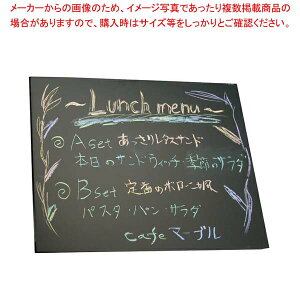 メーカーからの画像のため、イメージ写真であったり複数掲載商品の
場合がありますので、購入時はサイズ等をしっかりとご確認ください。
~Lunch menu~
Aset あっさりレタスサンド
本日のサンドウィッチ・季節のサラダ
Bset 定番のボロニア風
パスタ・パン・サラダ
cafe マーブル